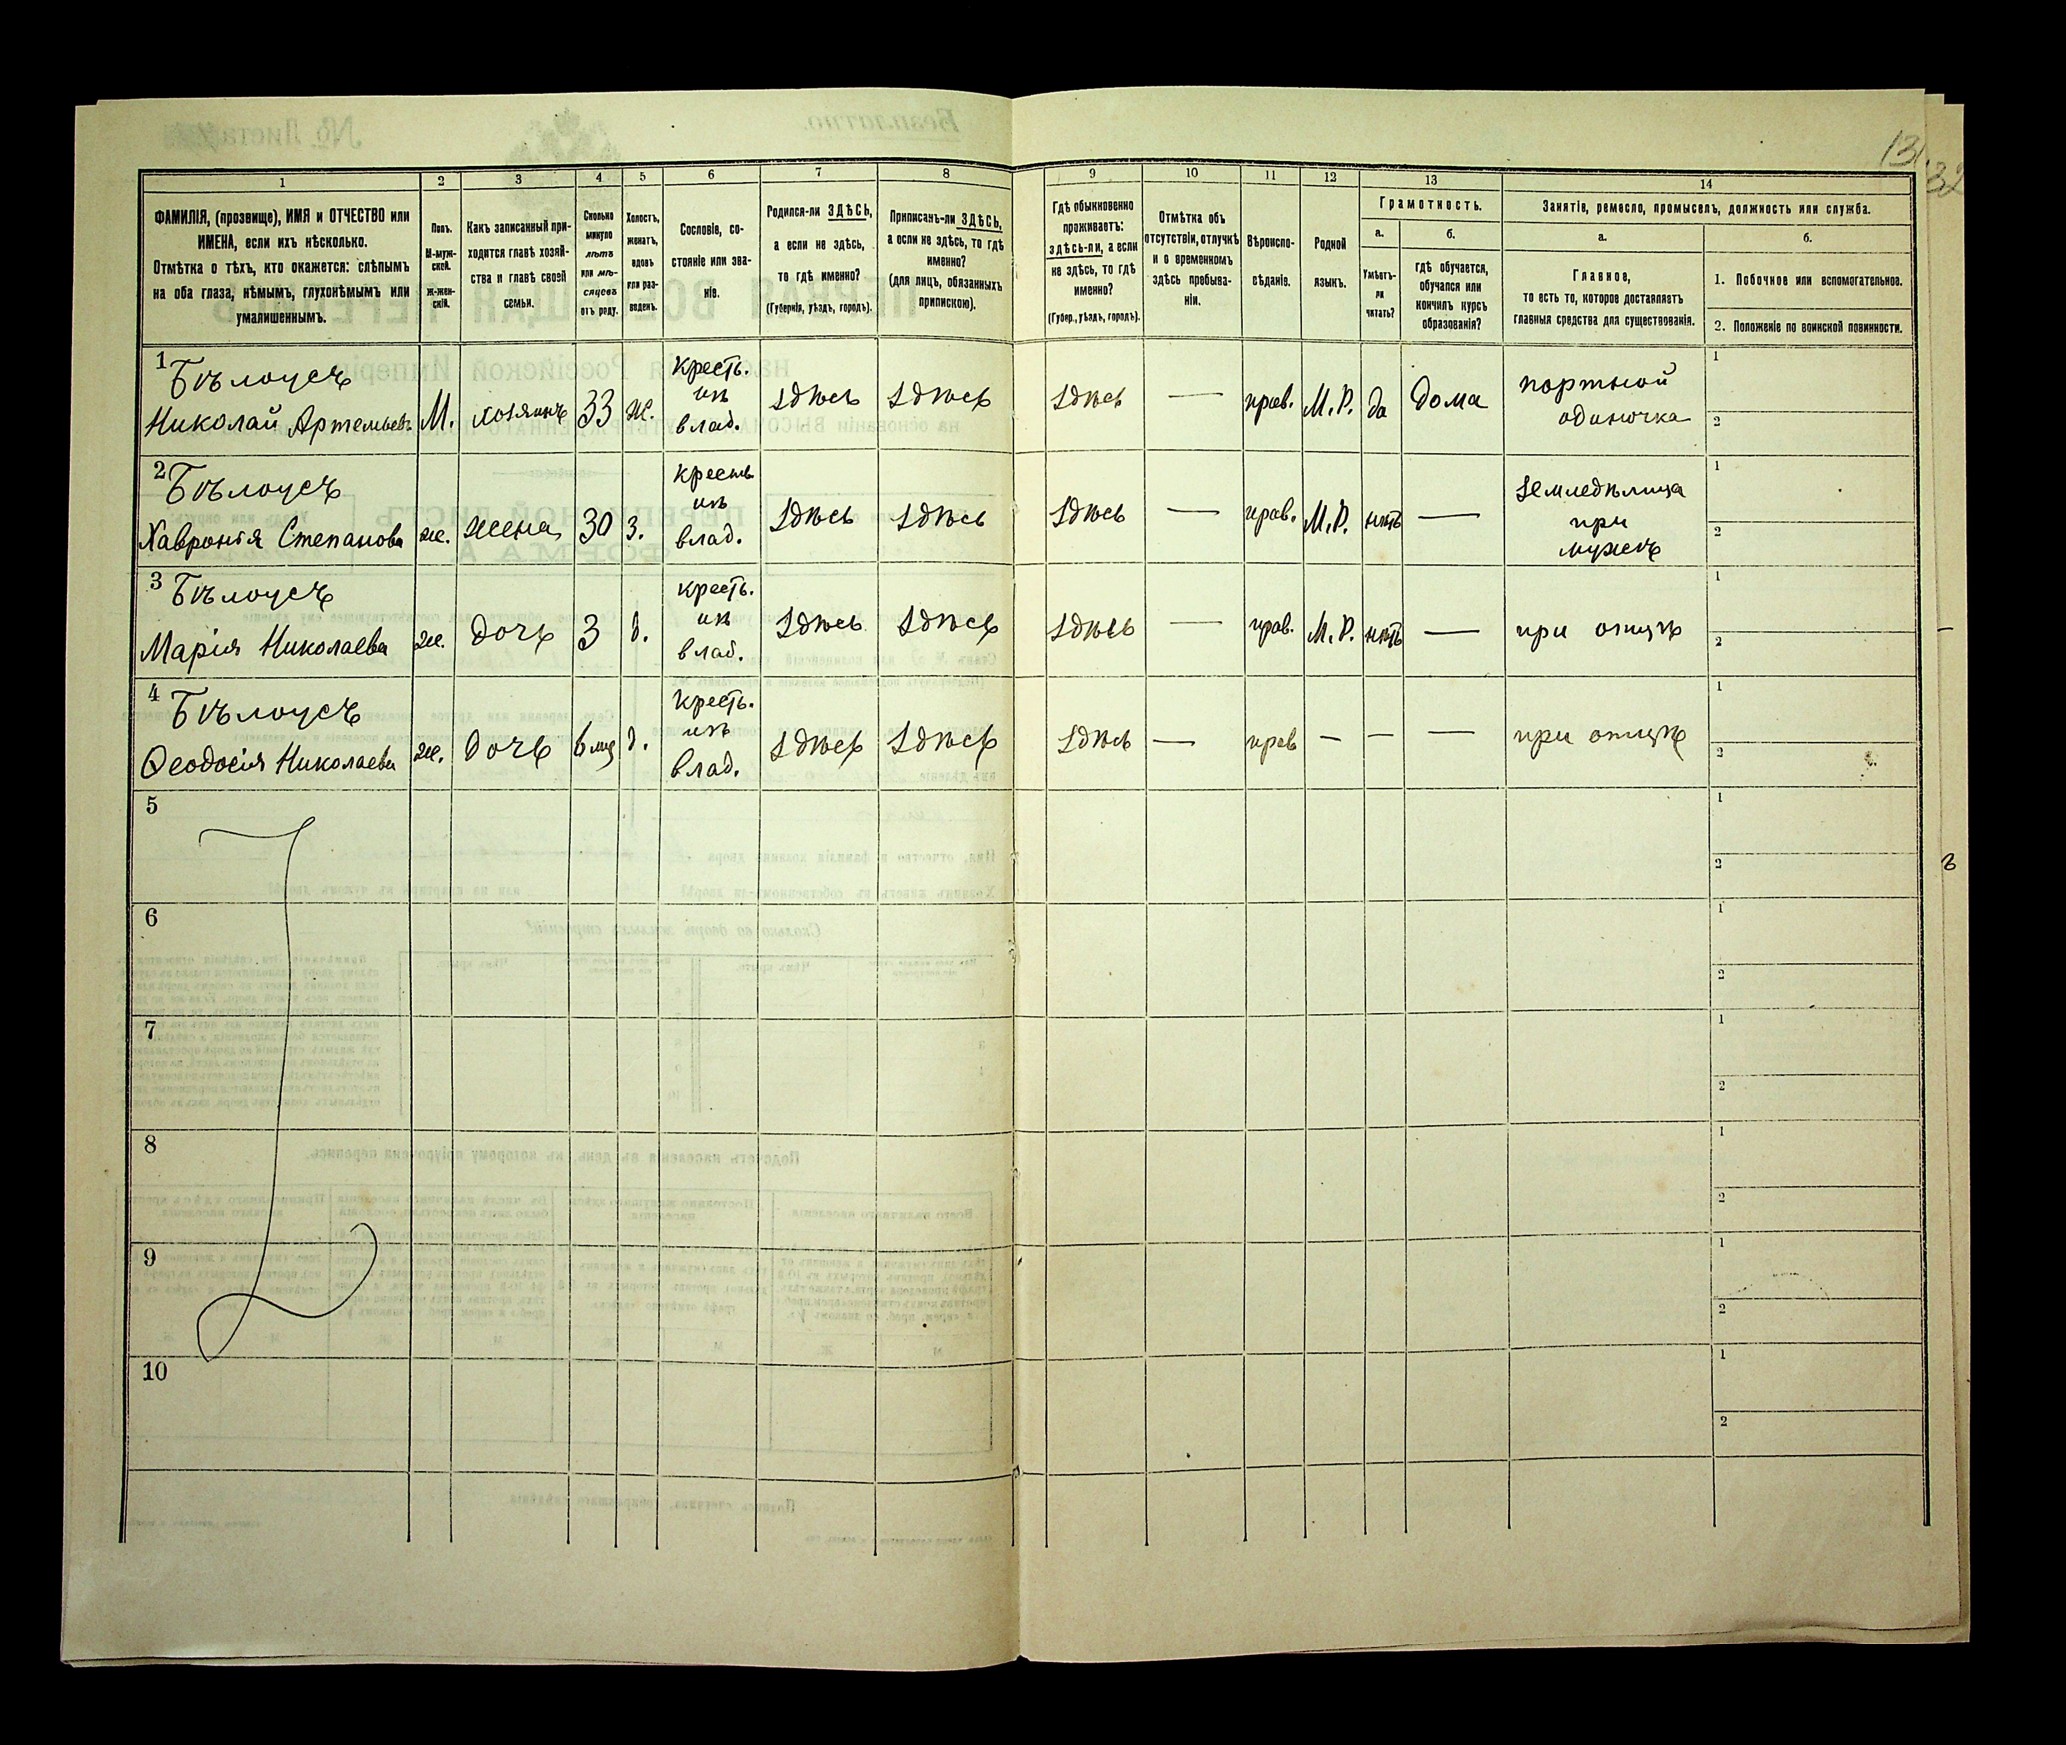 131
32
1 2 3 4 5 6 7 8 9 10 11 12 13 14
ФАМИЛІЯ, (прозвище), ИМЯ и ОТЧЕСТВО или
ИМЕНА, если ихъ нѣсколько.
Отмѣтка о тѣхъ, кто окажется: слѣпымъ
на оба глаза, нѣмымъ, глухонѣмымъ или
умалишеннымъ.
Полъ.
М-муж-
ской.
ж-жен-
скій.
Какъ записанный при-
ходится главѣ хозяй-
ства и главѣ своей
семьи.
Сколько
минуло
лѣтъ
или мѣ-
сяцевъ
отъ роду.
Холостъ,
женатъ,
вдовъ
или раз-
веденъ.
Сословіе, со-
стояніе или зва-
ніе.
Родился-ли ЗДѢСЬ,
а если не здѣсь,
то гдѣ именно?
(Губернія, уѣздъ, городъ).
Приписанъ-ли ЗДѢСЬ,
а если не здѣсь, то гдѣ
именно?
(для лицъ, обязанныхъ
припискою).
Гдѣ обыкновенно
проживаетъ:
здѣсь-ли, а если
не здѣсь, то гдѣ
именно?
(Губер., уѣздъ, городъ).
Отмѣтка объ
отсутствіи, отлучкѣ
и о временномъ
здѣсь пребыва-
ніи.
Вѣроиспо-
вѣданіе.
Родной
языкъ.
Грамотность.
а.
Умѣетъ-
ли
читать?
б.
гдѣ обучается,
обучался или
кончилъ курсъ
образованія?
Занятіе, ремесло, промыселъ, должность или служба.
а.
Главное,
то есть то, которое доставляетъ
главныя средства для существованія.
б.
1. Побочное или вспомогательное.
2. Положеніе по воинской повинности.
1 Бѣлоусъ
Николай Артемьевъ М. хозяинъ 33 ж. кресть. изъ влад. здѣсь здѣсь здѣсь — прав. М.Р. да дома портной одиночка 1 2
2 Бѣлоусъ
Хавронія Степанова ж. жена 30 з. кресть изъ влад. здѣсь здѣсь здѣсь — прав. М.Р. нѣтъ — земледѣлица при мужѣ 1 2
3 Бѣлоусъ
Марія Николаева ж. дочь 3 д. кресть. изъ влад. здѣсь здѣсь здѣсь — прав. М.Р. нѣтъ — при отцѣ 1 2
4 Бѣлоусъ
Ѳеодосія Николаева ж. дочь 6 мц д. кресть. изъ влад. здѣсь здѣсь здѣсь — прав — — — при отцѣ 1 2
5 1 2
6 1 2
7 1 2
8 1 2
9 1 2
10 1 2